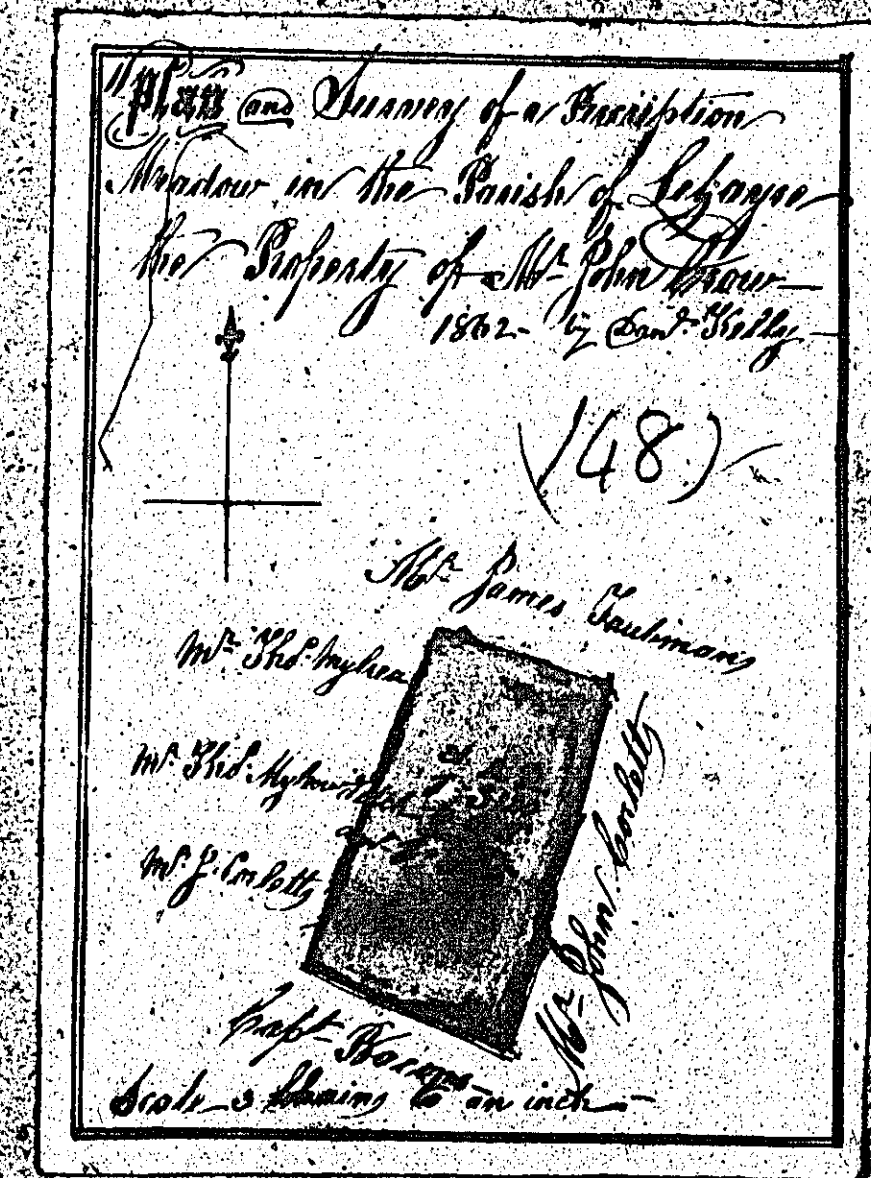 Plan and Survey of a Prescription
Meadow in the Parish of Lezayre
the Property of Mr. John Crow
1862 - by Dand. Kelly
(48)
Mr. James
Mr. Thos. Mylrea
Mr. Thos.
Mr. J. Corlett
Mr. John Corlett
Capt.
Scale 3 Chains to an inch